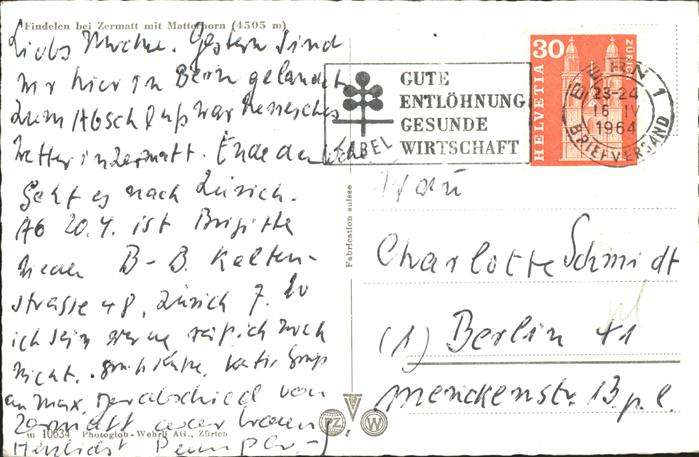 Findelen bei Zermatt mit Matterhorn (4505 m)
Gestern sind
wir hier in Bern gelandet
zum Abschluß war herrliches
Wetter in Zermatt. Ende der Woche
geht es nach Zürich.
Ab 20.4. ist Brigitte
B-B. Kelten-
strasse 48, Zürich 7. Wo
ich sein werde weiß ich noch
nicht.
an Max, der Abschied von
Zermatt
Herzlichst
m 10634 Photoglob-Wehrli AG., Zürich
Fabrication suisse
GUTE
ENTLÖHNUNG
GESUNDE
WIRTSCHAFT
LABEL
HELVETIA
30
ZÜRICH
BERN 1
23-24
16 IV
1964
BRIEFVERSAND
Frau
Charlotte Schmidt
(1) Berlin 41
Menckenstr. 13 p. l.
PZ
W